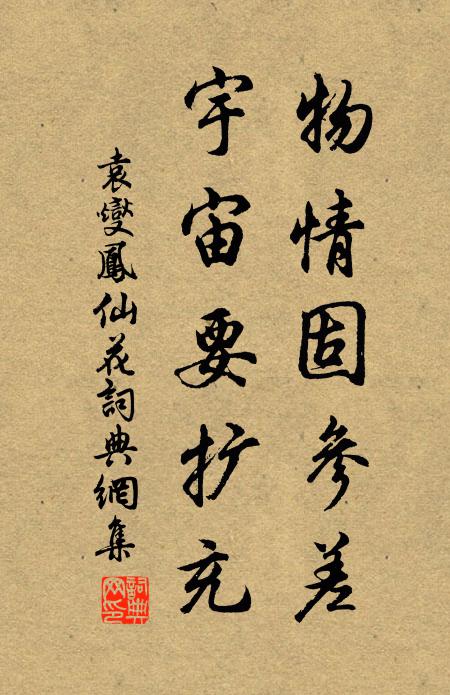 物情固參差
宇宙要扩充
袁燮鳳仙花詞典網集
詞典网印